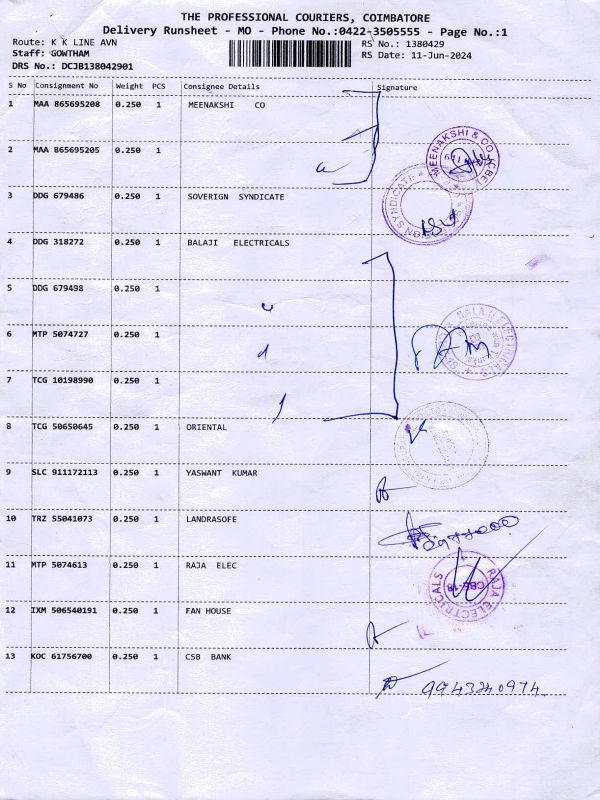 THE PROFESSIONAL COURIERS, COIMBATORE
Delivery Runsheet - MO - Phone No.:0422-3505555 - Page No.:1
Route: K K LINE AVN RS No.: 1380429
Staff: GOWTHAM RS Date: 11-Jun-2024
DRS No.: DCJB138042901
S No Consignment No Weight PCS Consignee Details Signature
1 MAA 865695208 0.250 1 MEENAKSHI CO
2 MAA 865695205 0.250 1
MEENAKSHI & CO
3 DDG 679486 0.250 1 SOVERIGN SYNDICATE
SYNDICATE
4 DDG 318272 0.250 1 BALAJI ELECTRICALS
5 DDG 679498 0.250 1
6 MTP 5074727 0.250 1
BALAJI ELECTRICALS
7 TCG 10198990 0.250 1
8 TCG 50650645 0.250 1 ORIENTAL
9 SLC 911172113 0.250 1 YASWANT KUMAR
10 TRZ 55041073 0.250 1 LANDRASOFE
11 MTP 5074613 0.250 1 RAJA ELEC
RAJA ELECTRICALS
CBE-18
12 IXM 506540191 0.250 1 FAN HOUSE
13 KOC 61756700 0.250 1 CSB BANK
9943240974